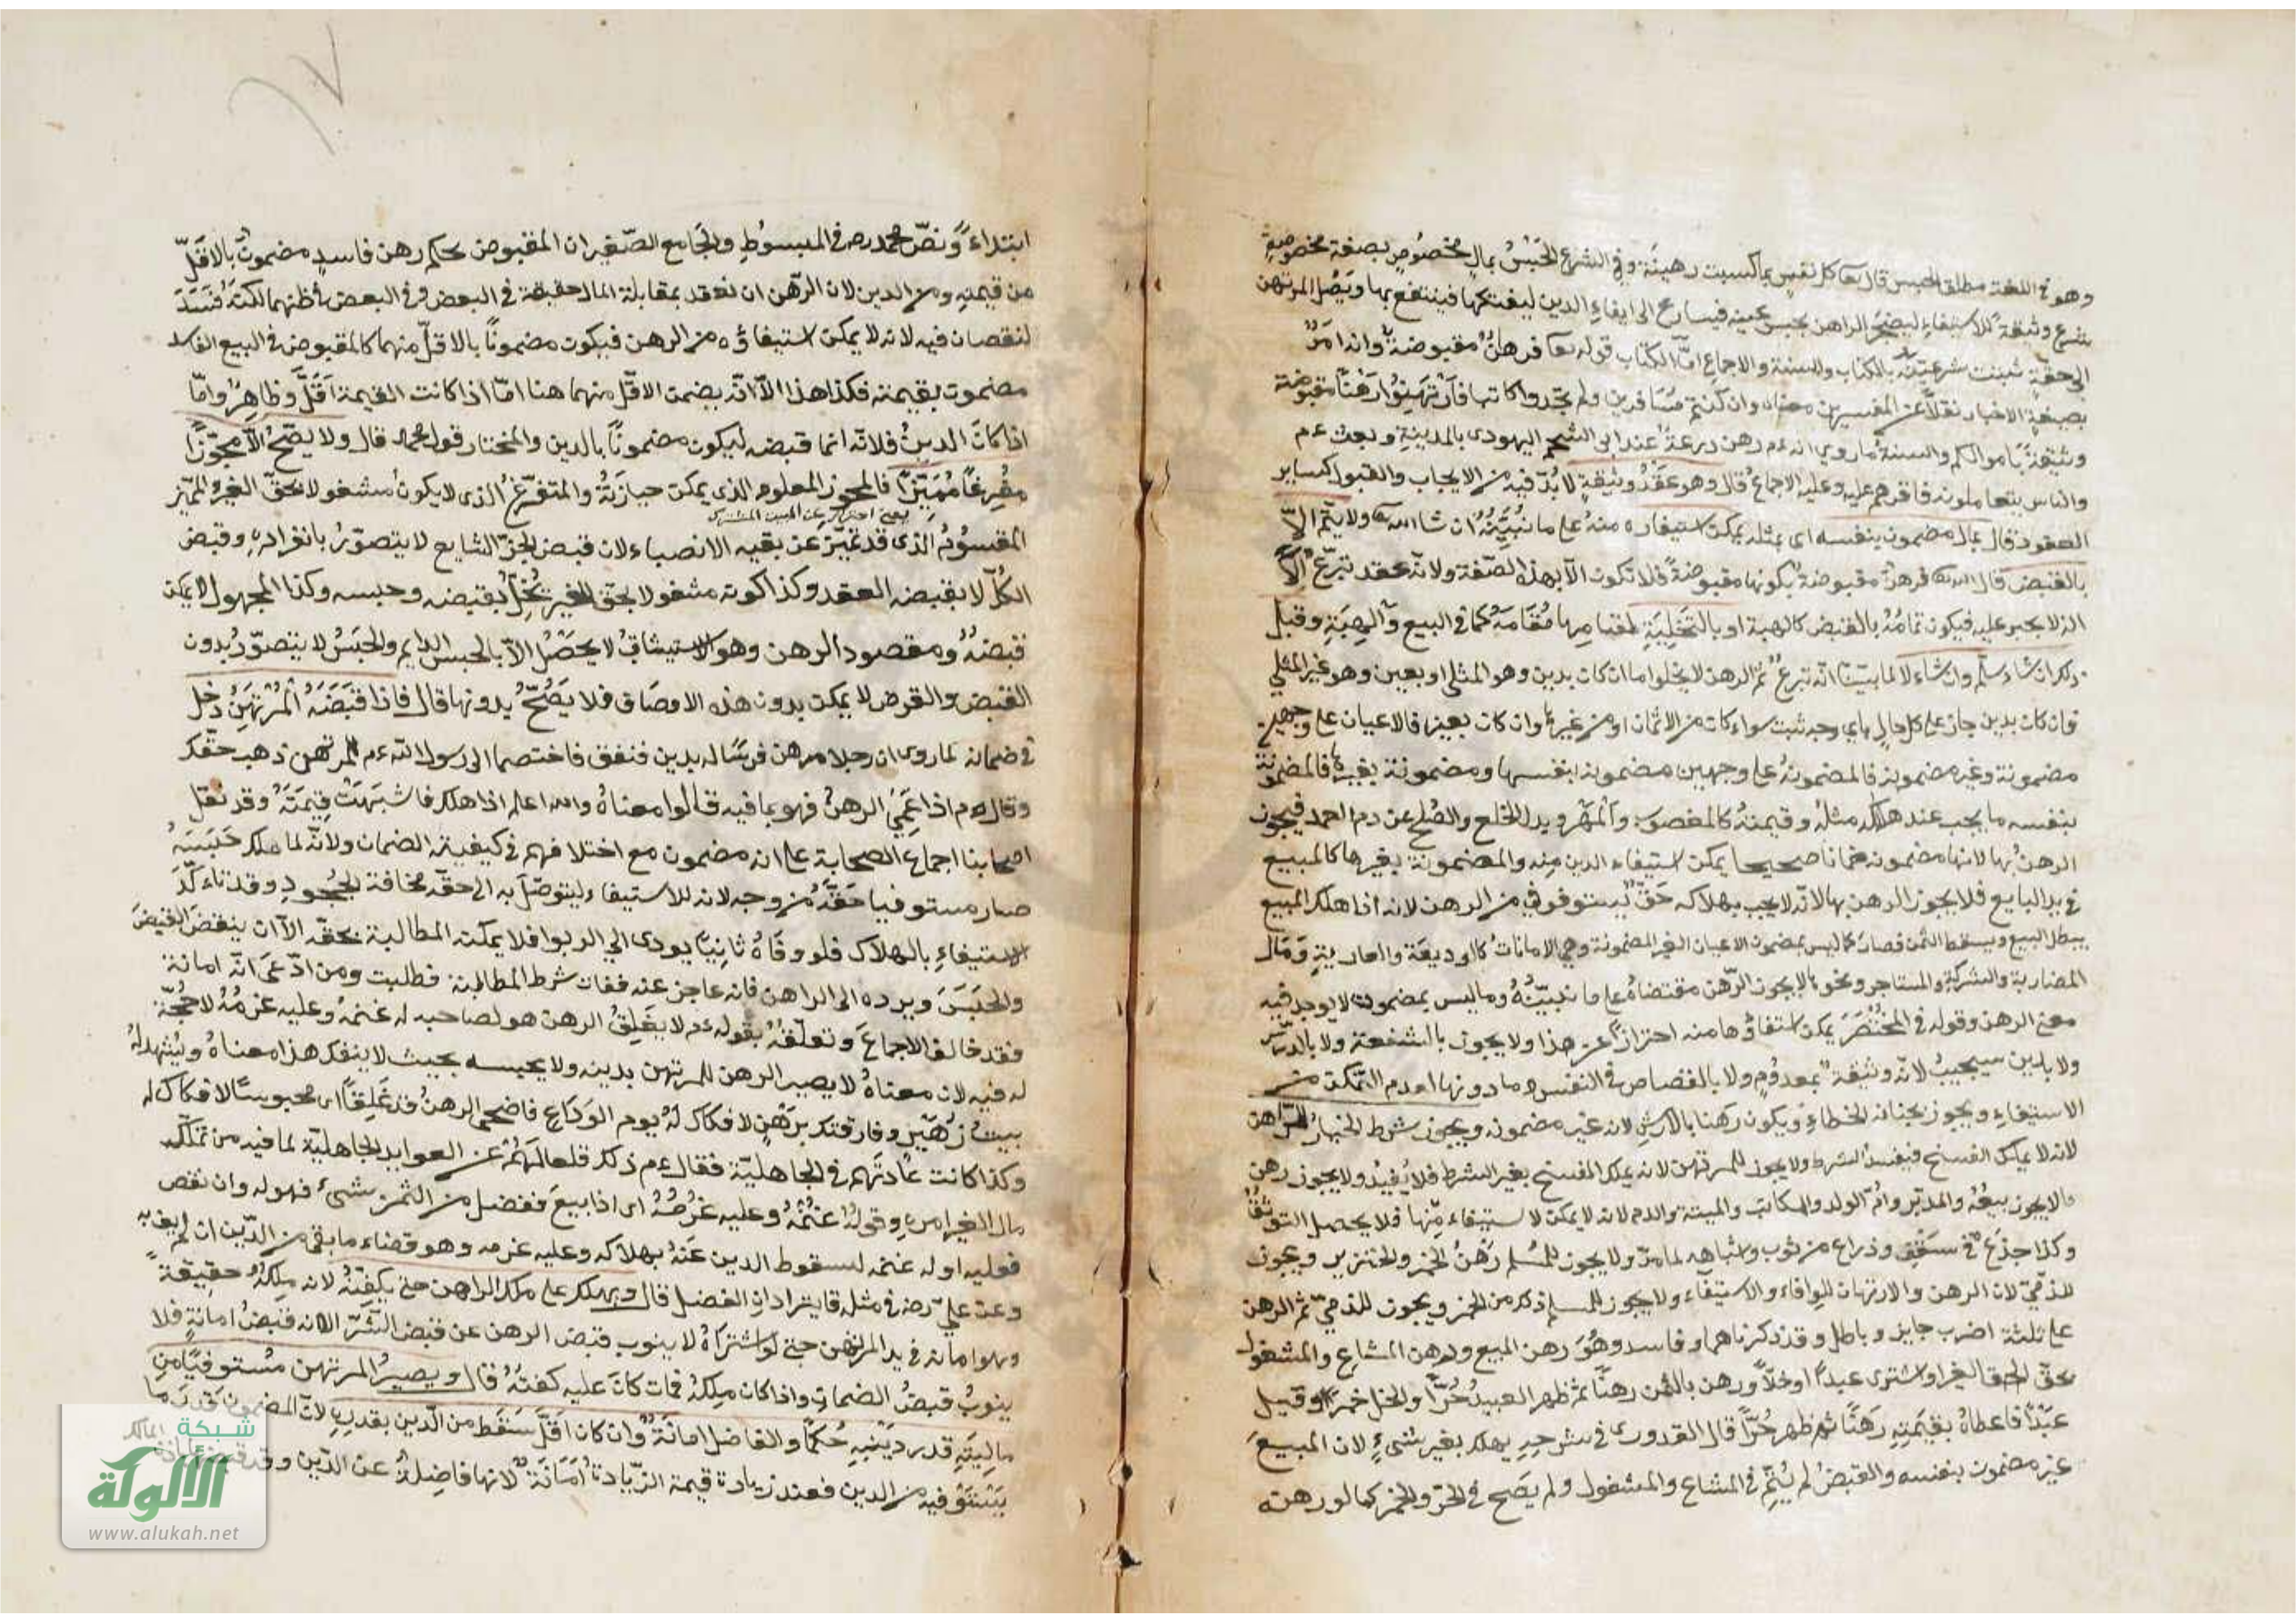 وهو في اللغة مطلق الحبس قال تعا كل نفس بما كسبت رهينة وفي الشرع الحَبْسُ بمالٍ مخصُوصٍ بصفة مخصوصةٍ
شرع وثيقة للاستيفاء ليضجر الراهن بحبس عينه فيسارع الى ايفاءِ الدين ليفتكها فينتفع بها ويَصِل المرتهن
الى حقّهِ ثبتت شرعيّته بالكتاب والسنة والاجماع امّا الكتاب قوله تعا فرهانٌ مقبوضة وانه امرٌ
بصيغة الاخبار نقلاً عن المفسرين معناه وان كنتم مسَافرين ولم تجدوا كاتبا فارْتَهِنُوا رَهْناً مقبوضة
وثيقةً باموالكم والسنة ما روي انه ءم رهن درعَهُ عند ابي الشحم اليهودي بالمدينةِ وبعث ءم
والناس يتعاملونه فاقرهم عليه وعليه الاجماعُ قال وهو عَقدُ وثيقةٍ لا بُدّ فيه من الايجاب والقبول كساير
العقود قال بمال مضمون بنفسه اى بمثله يمكن استيفاره منهُ على ما نُبَيِّنُهُ ان شا الله تعا ولا يتمّ الاّ
بالقبض قال الله تعا فرهنٌ مقبوضة بكونها مقبوضةً فلا تكون الاّ بهذه الصّفة ولانّه عقد تبرّع الاّ
انه لا يجبر عليه فيكون تمامُهُ بالقبض كالهبة او بالتَخلِيَةِ لقيامها مُقَامَهُ كما في البيع والهِبَةِ وقبل
ذلك ان شاء سلّم وان شاء لا لما بيّنّا انّه تبرعٌ ثم الرهن لا يخلوا اما ان كان بدين وهو المثلي او بعين وهو غير المثلي
فان كان بدين جاز على كل حالٍ باي وجه ثبت سواء كان من الاثمان او من غيرها وان كان بعين فالاعيان على وجهين
مضمونة وغير مضمونه فالمضمونةُ على وجهين مضمونه بنفسها ومضمونة بغيرها فالمضمونة
بنفسه ما يجب عند هلاكه مثلهُ وقيمتهُ كالمغصوب والمَهْرِ وبدل الخلع والصُلح عن دم العمد فيجوز
الرهنُ بها لانها مضمونه ضمانا صحيحا يمكن استيفاء الدين مِنه والمضمونة بغيرها كالمبيع
في يد البايع فلا يجوز الرهن بها لانّه لا يجب بهلاكه حَقٌّ يُستوفى من الرهن لانه اذا هلك المبيع
يبطل البيع ويسقط الثمن فصار كما ليس بمضمون الاعيان الغير المضمونة وهي الامانات كالوديعَة والعاريةِ وَمَال
المضاربة والشركة والمستاجر ونحوها لا يجوز الرّهن مقتضاهُ على ما نبيّنُهُ وما ليس بمضمون لا يوجد فيه
معنى الرهن وقوله في المُخْتَصَر يمكن استيفاؤها منه احترازٌ عن هذا ولا يجوز بالشفعة ولا بالدرك
ولا بدين سيجبُ لانّه وثيقة بمعدُومٍ ولا بالقصاص في النفس وما دونها لعدم التمكن من
الاستيفاءِ ويجوز بجناية الخطاءِ ويكون رَهنا بالارشِ لانه غير مضمونه ويجوز شرط الخيارُ للراهن
لانه لا يملك الفسخ فيفسدُ الشرط ولا يجوز للمرتهن لانه يملك الفسخ بغير الشرط فلا يُفيدُ ولا يجوز رهن
ما لا يجوز بيعُهُ والمدبّر وامّ الولد والمكاتب والميتة والدم لانه لا يمكن لاستيفاء مِنها فلا يحصل التوثّقُ
وكذا جذعٌ في سَقْفٍ وذراع من ثوب واشباهه لما مرّ ولا يجوز للمُسلم رَهْنُ الخمر والخنزير ويجوز
للذميّ لان الرهن والارتهان للوفاء والاستيفاء ولا يجوز للمسلم ذلك من الخمر ويجوز للذميّ ثم الرهن
على ثلثة اضرب جايز وباطل وقد ذكرناهما وفاسد وهُوَ رهن المبيع ورهن المشاع والمشغول
بحقّ الحق الغير واشترى عبداً او خلاًّ ورهن بالثمن رهنًا ثم ظهر العبدُ حُرّاً والخل خمرا وقيل
عبْداً فاعطاهُ بقيمتِهِ رَهنًا ثم ظهر حُرًّا قال القدورى في شرحه يهلك بغير شيءٍ لان المبيعَ
غير مضمون بنفسه والقبضُ لم يُتِمّ في المشاع والمشغول ولم يصَح في الحرّ والخمر كما لو رهنه
ابتداءً ونصّ محمد رح في المبسُوطِ والجَامع الصّغير ان المقبوض بحكم رهن فاسدٍ مضمونٌ بالاقلّ
من قيمتِهِ ومن الدين لان الرّهن انعقد بمقابلة المال حقيقة في البعض وفي البعض في ظنهما لكنّهُ فَسَدَ
لنقصان فيه لانه لا يمكن استيفاؤه من الرهن فيكون مضموناً بالاقلّ منهما كالمقبوض في البيع الفاسد
مضمون بقيمته فكذا هذا الاّ انّه يضمن الاقلّ منهما هنا امّا اذا كانت القيمة اَقَلَّ وظاهِرٌ وامّا
اذا كانَ الدينُ فلانّه انما قبضه ليكون مضموناً بالدين والمختار قول محمد قال ولا يصّحُ الاّ محوّزاً
مفرغاً مُميّزاً فالمحوز المعلوم الذي يمكن حيازَتُهُ والمتفرّغ الذى لا يكونُ مشغولا بحقّ الغير والمميّز
يعنى احترز عن المبيع المشترى
المقسُومُ الذى قد تميّز عن بقيه الانصباء لان قبض الجزءِ الشايع لا يتصوّرُ بانفرادِهِ وقبض
الكُلّ لا يقبضه العقد وكذا كونه مشغولا بحق الغير يُخِلُّ بقبضه وحبسه وكذا المجهول لا يمكن
قبضُهُ ومقصود الرهن وهو الاستيثاقُ لا يحصُلُ الاّ بالحبس الدايم والحَبسُ لا يتصوّرُ بدون
القبض والقرض لا يمكن بدون هذه الاوصَاف فلا يَصُحّ بدونها قال فاذا قَبَضَهُ المُرْتَهِنُ دخل
في ضمانه لما روى ان رجلا رهن فرسًا له بدين فنفق فاختصما الى رسول الله ءم للمرتهن ذهب حقّك
وقال ءم اذا عَمِيَ الرهنُ فهو بما فيه قالوا معناهُ والله اعلم اذا هلك فاشبَهَتْ قِيمَتَهُ وقد نقل
اصحابنا اجماع الصحابة على انه مضمون مع اختلافهم في كيفية الضمان ولانّه لما ملك حَبْسَهُ
صار مستوفيا حَقَّهُ من وجه لانه للاستيفاء ليتوصّلَ به الى حقّه مخافة الجُحودِ وقد تاءكّدَ
الاستيفاءِ بالهلاك فلو وفّاهُ ثانِيًا يودى الى الربوا فلا يمكنه المطالبة بحقّه الاّ ان ينقض القبضَ
والحَبسَ ويرده الى الراهن فانه عاجز عنه ففات شرط المطالبة فطلبت ومن ادّعَى انّه امانة
فقد خالف الاجماعَ وتعلّقُهُ بقوله ءم لا يَغلِقُ الرهن هو لصاحبه له غنمُهُ وعليه غرمُهُ لا حُجّةَ
له فيه لان معناهُ لا يصير الرهن للمرتهن بدينه ولا يحبسه بحيث لا ينفك هذا معناهُ ويُشهد لهُ
بيتُ زُهَيْر وفارقتك برَهْنٍ لا فكاك لهُ يوم الوَدَاعِ فاضحى الرهنُ قد غَلِقًا اى محبوسًا لا فكاك له
وكذا كانت عَادتُهم في الجاهليّة فقال ءم ذلك قلعا لهُم عن العوايد الجاهليّة لما فيه من تملّك
مال الغير امرهِ وقوله لهُ غنمُهُ وعليه غرمُهُ اى اذا بيعَ ففضل من الثمن شىءٌ فهو له وان نقص
فعليه او له غنمه لسقوط الدين عَنهُ بهلاكه وعليه غرمه وهو قضاء ما بقى من الدّين ان لم يف به
وعن عليّ رضه في مثله قا يترادان الفضل قال ويهلك على ملك الراهن حتى يكفّنَهُ لانه مِلكُهُ حقيقةً
وهو امانه في يد المرتهن حتى لو اشتراهُ لا ينوب قبض الرهن عن قبض الشرى لانه قبضُ امانةٍ فلا
ينوبُ قبضُ الضمان واذا كان مِلكُهُ فمات كانَ عليه كفنُهُ قال ويصيرُ المرتهن مُستوفيًا من
ماليتِهِ قدر دَيْنِهِ حُكمًا والفاضل امانةٌ وان كان اقلّ سَقط من الدّين بقدرِهِ لانّ المضمون قدر ما
يَسْتَوْفيه من الدين فعند زيادة قيمة الزيادة امَانَةٌ لانها فاضِلةٌ عن الدّين وقد
شبكة
الألوكة
www.alukah.net